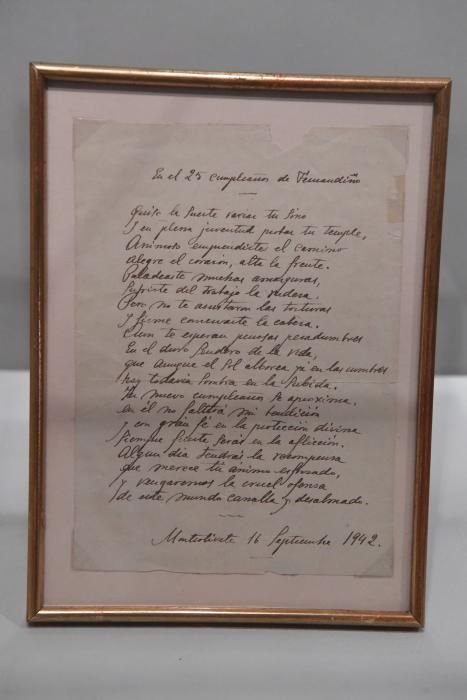 En el 25 cumpleaños de Fernandiño
Quiso la suerte variar tu sino
y en plena juventud probar tu temple,
Animoso emprendiste el camino
Alegre el corazón, alta la frente.
Paladeaste muchas amarguras,
sufriste del trabajo la rudeza.
Pero no te asustaron las torturas
y firme conservaste la cabeza.
Aun te esperan penosas pesadumbres
En el duro sendero de la vida,
que aunque el sol alborea ya en las cumbres
hay todavia sombra en la subida.
Tu nuevo cumpleaños se aproxima,
en él no faltará mi bendición
y con gran fé en la protección divina
siempre fuerte serás en la aflicción.
Algun dia tendrás la recompensa
que merece tu animo esforzado,
y vengaremos la cruel ofensa
de este mundo canalla y desalmado.
16 Septiembre 1942.